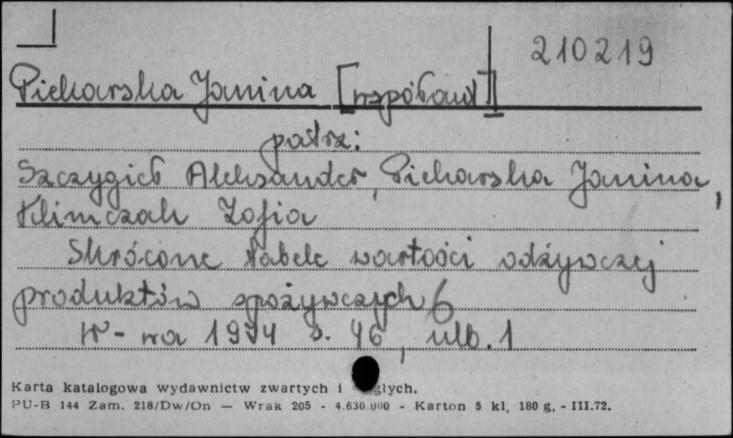 210219
Piekarska Janina [współaut]
patrz:
Szczygieł Aleksander, Piekarska Janina,
Klimczak Zofia
Skrócone tabele wartości odżywczej
produktów spożywczych
W-wa 1974 s. 46, ulb. 1
Karta katalogowa wydawnictw zwartych i ciągłych.
PU-B 144 Zam. 218/Dw/On — Wrak 205 - 4.630.000 - Karton 5 kl. 180 g. - III.72.